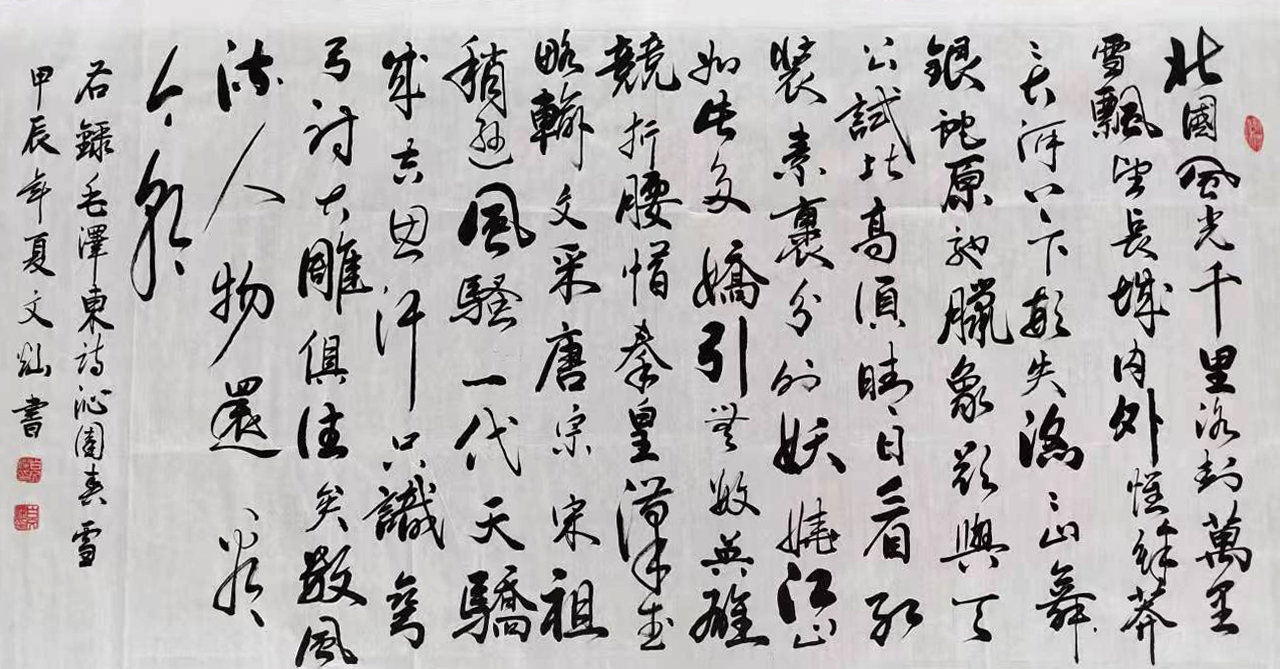 北國風光千里冰封萬里
雪飄望長城內外惟餘莽
〻大河上下頓失滔〻山舞
銀蛇原馳臘象欲與天
公試比高須晴日看紅
裝素裹分外妖嬈江山
如此多嬌引無數英雄
競折腰惜秦皇漢武
略輸文采唐宗宋祖
稍遜風騷一代天驕
成吉思汗只識彎
弓射大雕俱往矣數風
流人物還看
今朝
右錄毛澤東詩沁園春雪
甲辰年夏文灿書